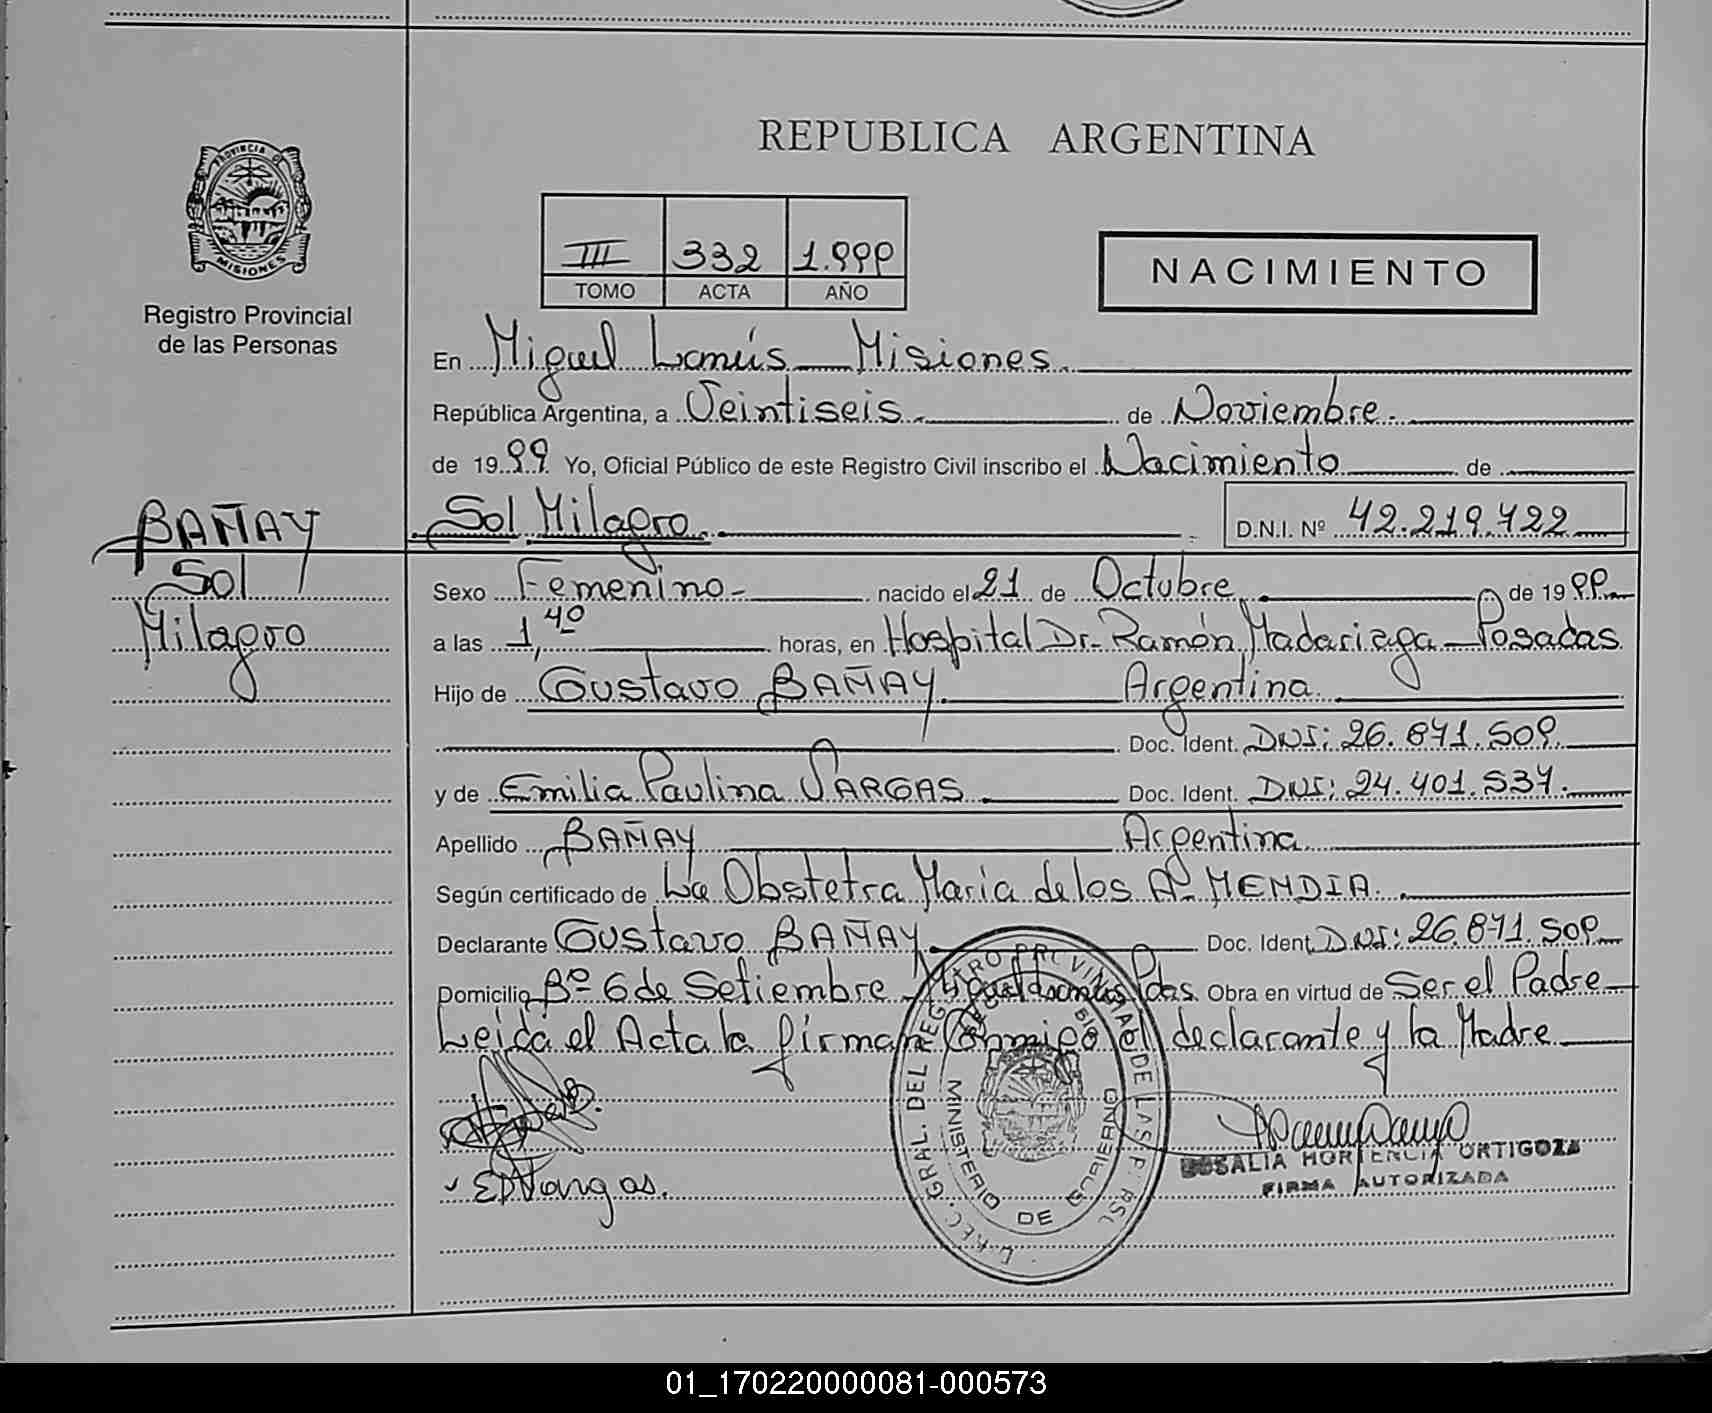 REPUBLICA ARGENTINA
PROVINCIA DE
MISIONES
Registro Provincial
de las Personas
III 332 1.999
TOMO ACTA AÑO
NACIMIENTO
En Miguel Lanús - Misiones.
República Argentina, a Veintiseis. de Noviembre.
de 1999. Yo, Oficial Público de este Registro Civil inscribo el Nacimiento de
BAÑAY
Sol
Milagro
Sol Milagro.
D.N.I. Nº 42.219.722
Sexo Femenino- nacido el 21 de Octubre, de 1999.
a las 1,40 horas, en Hospital Dr. Ramón Madariaga - Posadas
Hijo de Gustavo BAÑAY. Argentina.
Doc. Ident. DNI: 26.871.509.
y de Emilia Paulina VARGAS Doc. Ident. DNI: 24.401.537.
Apellido BAÑAY Argentina.
Según certificado de La Obstetra Maria de los A. MENDIA.
Declarante Gustavo BAÑAY. Doc. Ident. DNI: 26.871.509.
Domicilio Bº 6 de Setiembre Miguel Lanús Pdas. Obra en virtud de Ser el Padre
Leida el Acta la firman Conmigo el declarante y la Madre
EPVargas.
GRAL. DEL REGISTRO PROVINCIAL DE LAS
MINISTERIO DE GOBIERNO
ROSALIA HORTENCIA ORTIGOZA
FIRMA AUTORIZADA
01_170220000081-000573